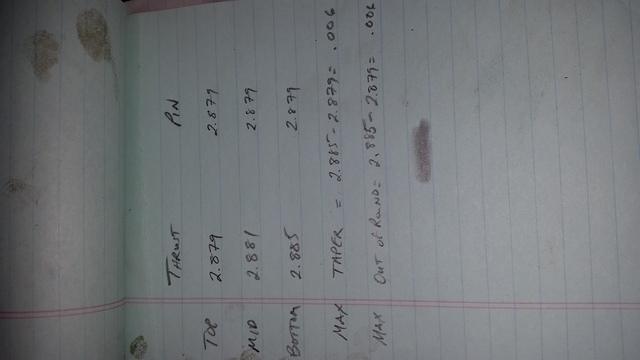 THRUST PIN
TOP 2.879 2.879
MID 2.881 2.879
BOTTOM 2.885 2.879
MAX TAPER = 2.885 - 2.879 = .006
MAX OUT of ROUND = 2.885 - 2.879 = .006